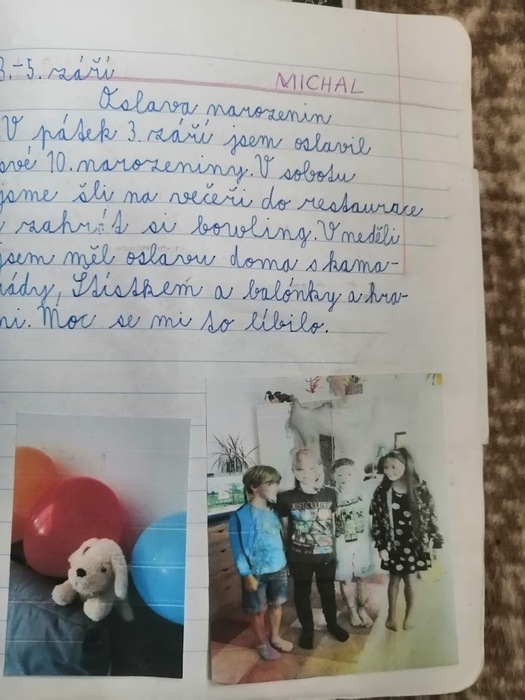 3.-5. září
MICHAL
Oslava narozenin
V pátek 3. září jsem oslavil
své 10. narozeniny. V sobotu
jsme šli na večeři do restaurace
zahrát si bowling. V neděli
jsem měl oslavu doma s kama-
rády, Štístkem a balónky a hra-
mi. Moc se mi to líbilo.